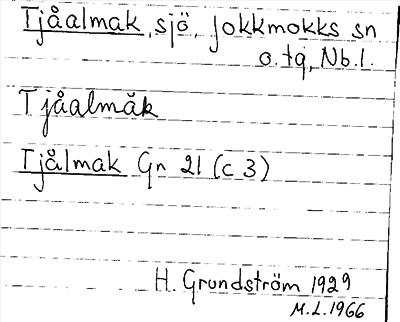 Tjåalmak, sjö, Jokkmokks sn
o. tg, Nb. l.
Tjåalmăk
Tjålmak Gn 21 (c 3)
H. Grundström 1929
M.L. 1966